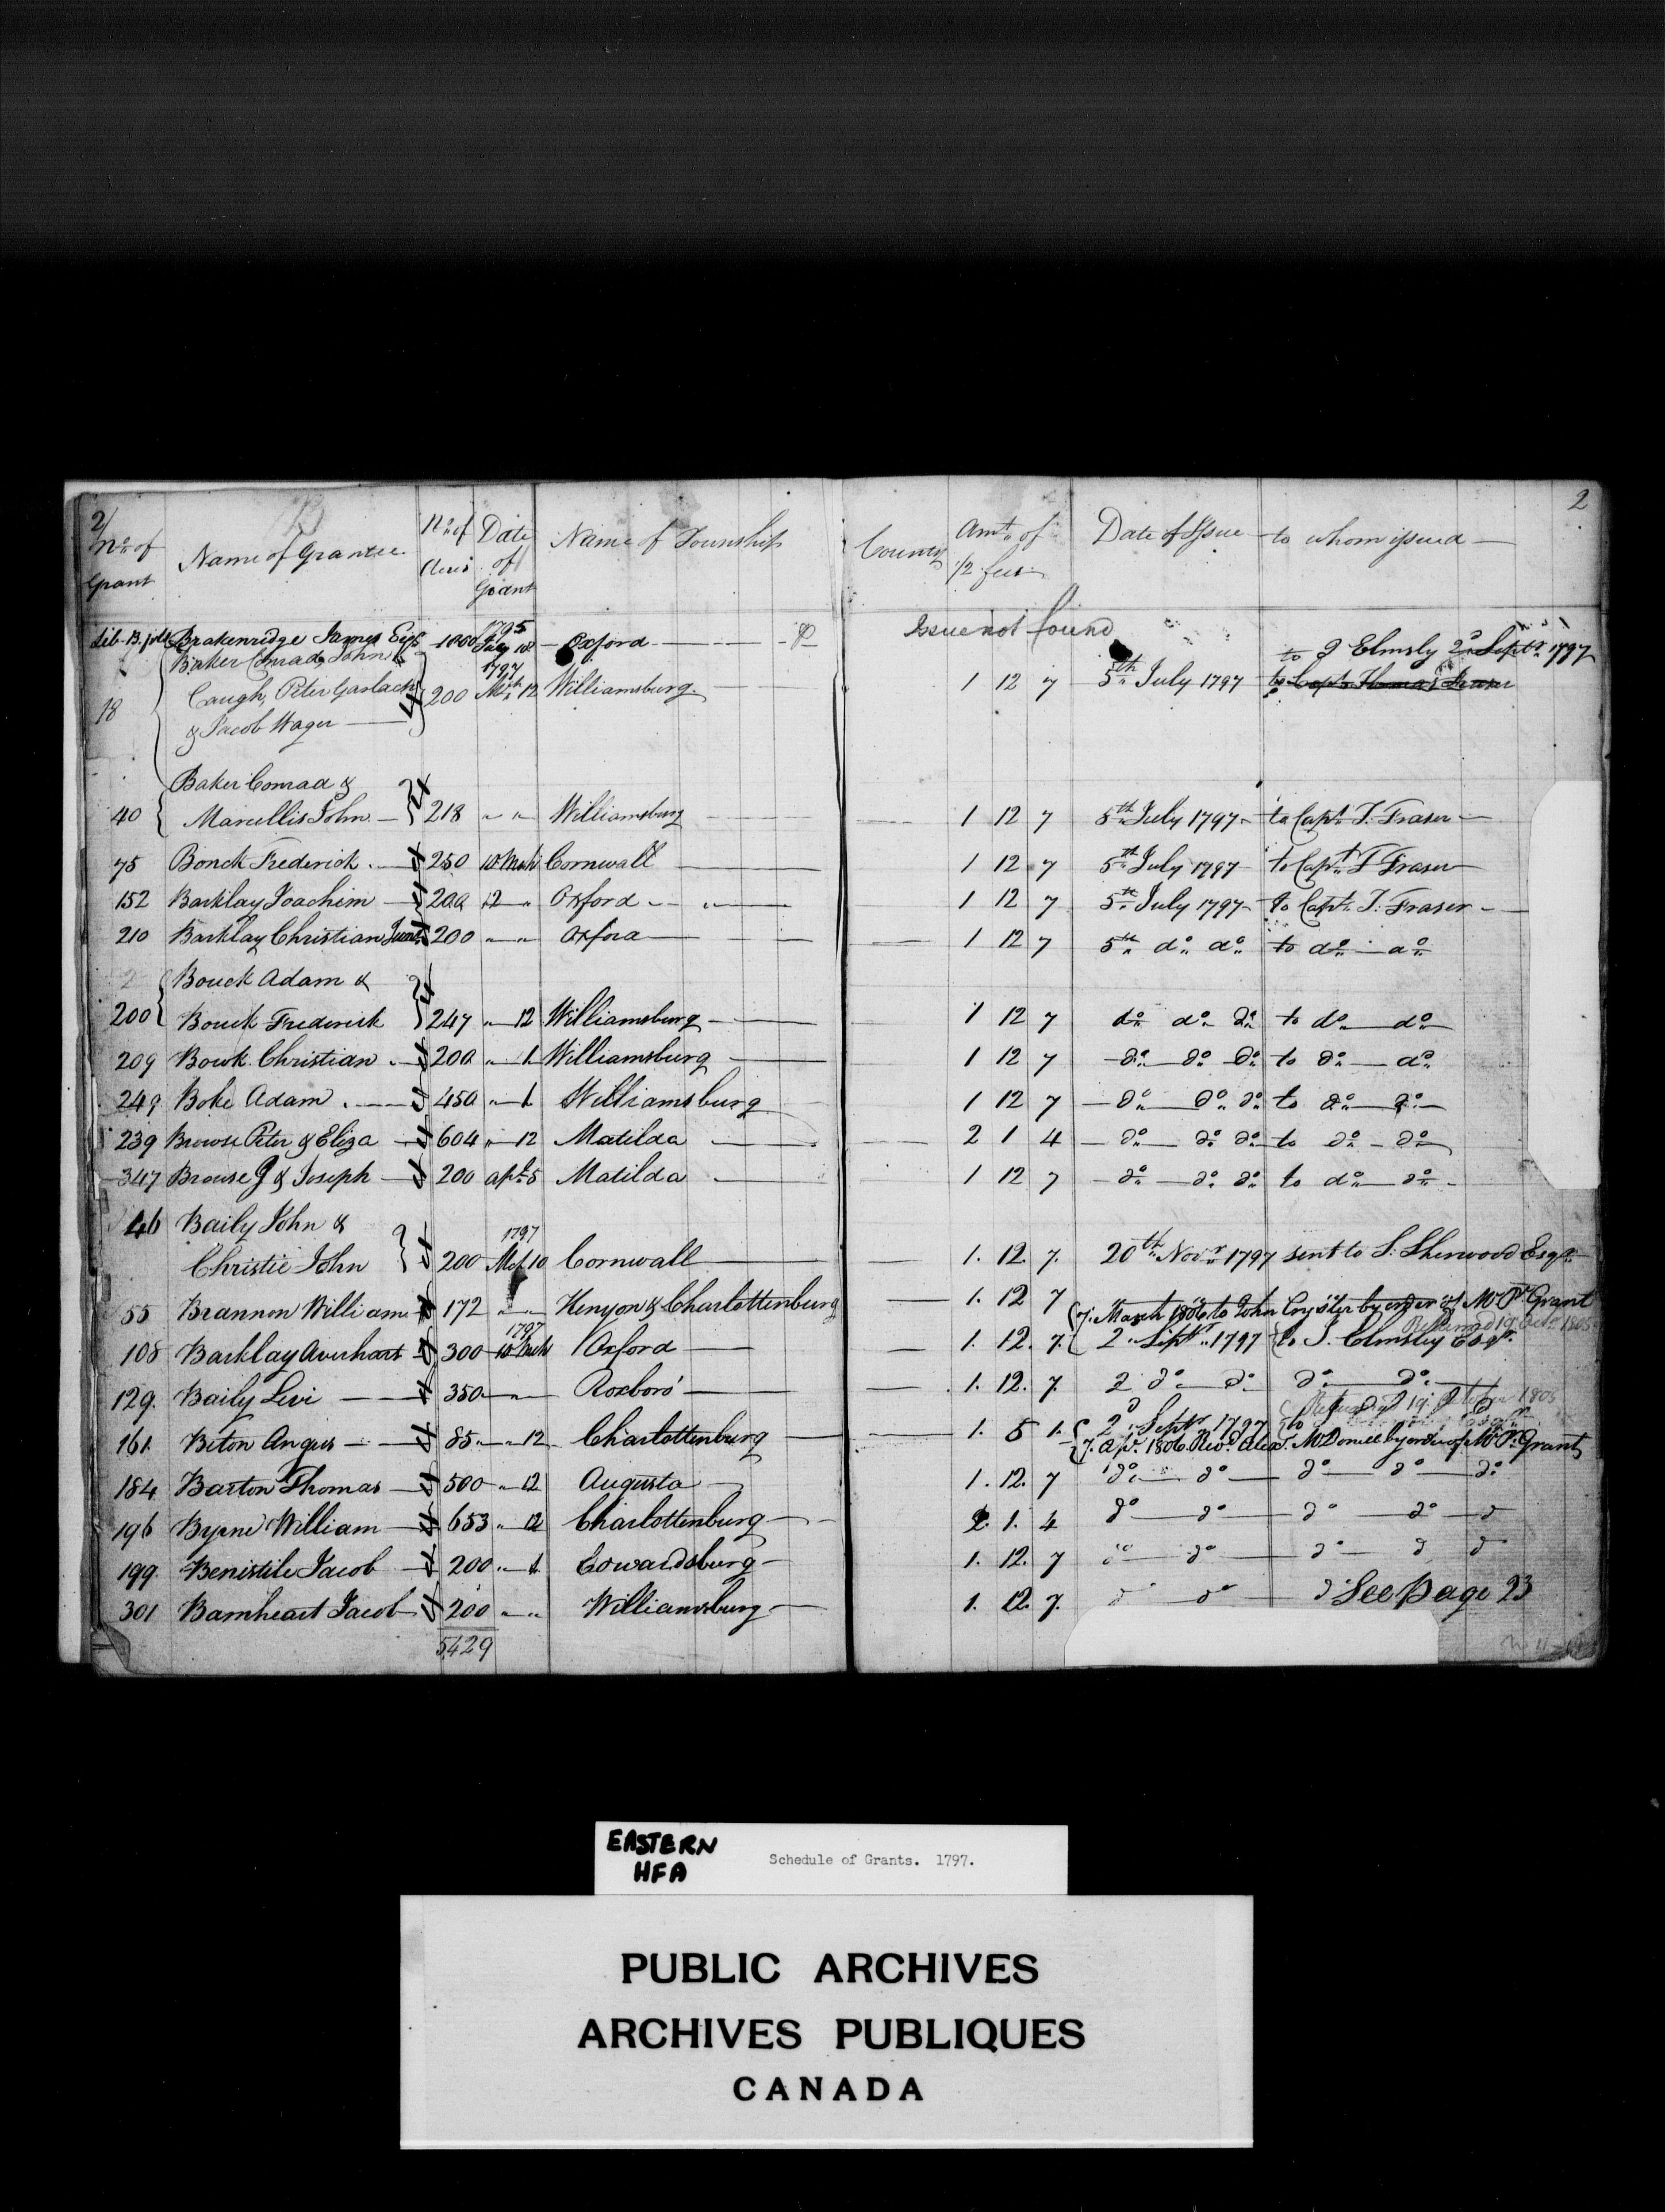 2/ B 2
No. of Grant Name of Grantee No. of Acres Date of Grant Name of Township County Amt. of 1/2 fees Date of Issue to whom issued
Issue not found
Lib. B. Brakenridge James Esqr 1000 1795 July Oxford to J Elmsly 2d Septr. 1797
18 Baker Conrad, John
Caugh, Peter Garlach 200 1797 Mch 12 Williamsburg 1 12 7 5th July 1797 to Capt. Thomas Fraser
& Jacob Wager
Baker Conrad &
40 Marcellis John 218 " " Williamsburg 1 12 7 5th July 1797 to Capt. T. Fraser
75 Bonck Frederick 250 10 Mch Cornwall 1 12 7 5th July 1797 to Capt. T Fraser
152 Barklay Joachim 200 12 " Oxford 1 12 7 5th July 1797 to Capt. T. Fraser
210 Barklay Christian Junr. 200 " " Oxford 1 12 7 5th do. do. to do. do.
Bouck Adam &
200 Bouck Frederick 247 " 12 Williamsburg 1 12 7 do. do. do. to do. do.
209 Bowk Christian 200 " 1 Williamsburg 1 12 7 do. do. do. to do. do.
249 Boke Adam 450 " 1 Williamsburg 1 12 7 do. do. do. to do. do.
239 Browse Peter & Eliza 604 " 12 Matilda 2 1 4 do. do. do. to do. do.
347 Brouse G & Joseph 200 Apl. 5 Matilda 1 12 7 do. do. do. to do. do.
46 Baily John &
Christie John 200 1797 Mch 10 Cornwall 1. 12. 7. 20th Novr 1797 sent to S. Sherwood Esqr.
55 Brannon William 172 " " Kenyon & Charlottenburg 1. 12 7
7. March 1806 to John Crysler by order of Mr. P. Grant
Returned 19 Octr. 1805
108 Barklay Averhart 300 1797 10 Mch Oxford 1. 12. 7. 2 Septr. 1797 to J. Elmsley Esqr.
129. Baily Levi 350 " Roxboro' 1. 12. 7. 2 do. do. do. do.
Returned 19 October 1805
161. Beton Angus 85 " 12 Charlottenburg 1. 5 1. 2d Septr 1797 to
7. Apr. 1806. Revd. Alexr. McDonell by order of Mr. P. Grant
184 Barton Thomas 500 " 12 Augusta 1. 12. 7 do. do do do do
196 Byrne William 653 " 12 Charlottenburg 2. 1. 4 do do do do d
199. Benistile Jacob 200 " 1 Edwardsburg 1. 12. 7 do do do d d
301 Barnheart Jacob 200 " " Williamsburg 1. 12. 7. d do d See Page 23
5429
EASTERN
HFA
Schedule of Grants. 1797.
PUBLIC ARCHIVES
ARCHIVES PUBLIQUES
CANADA